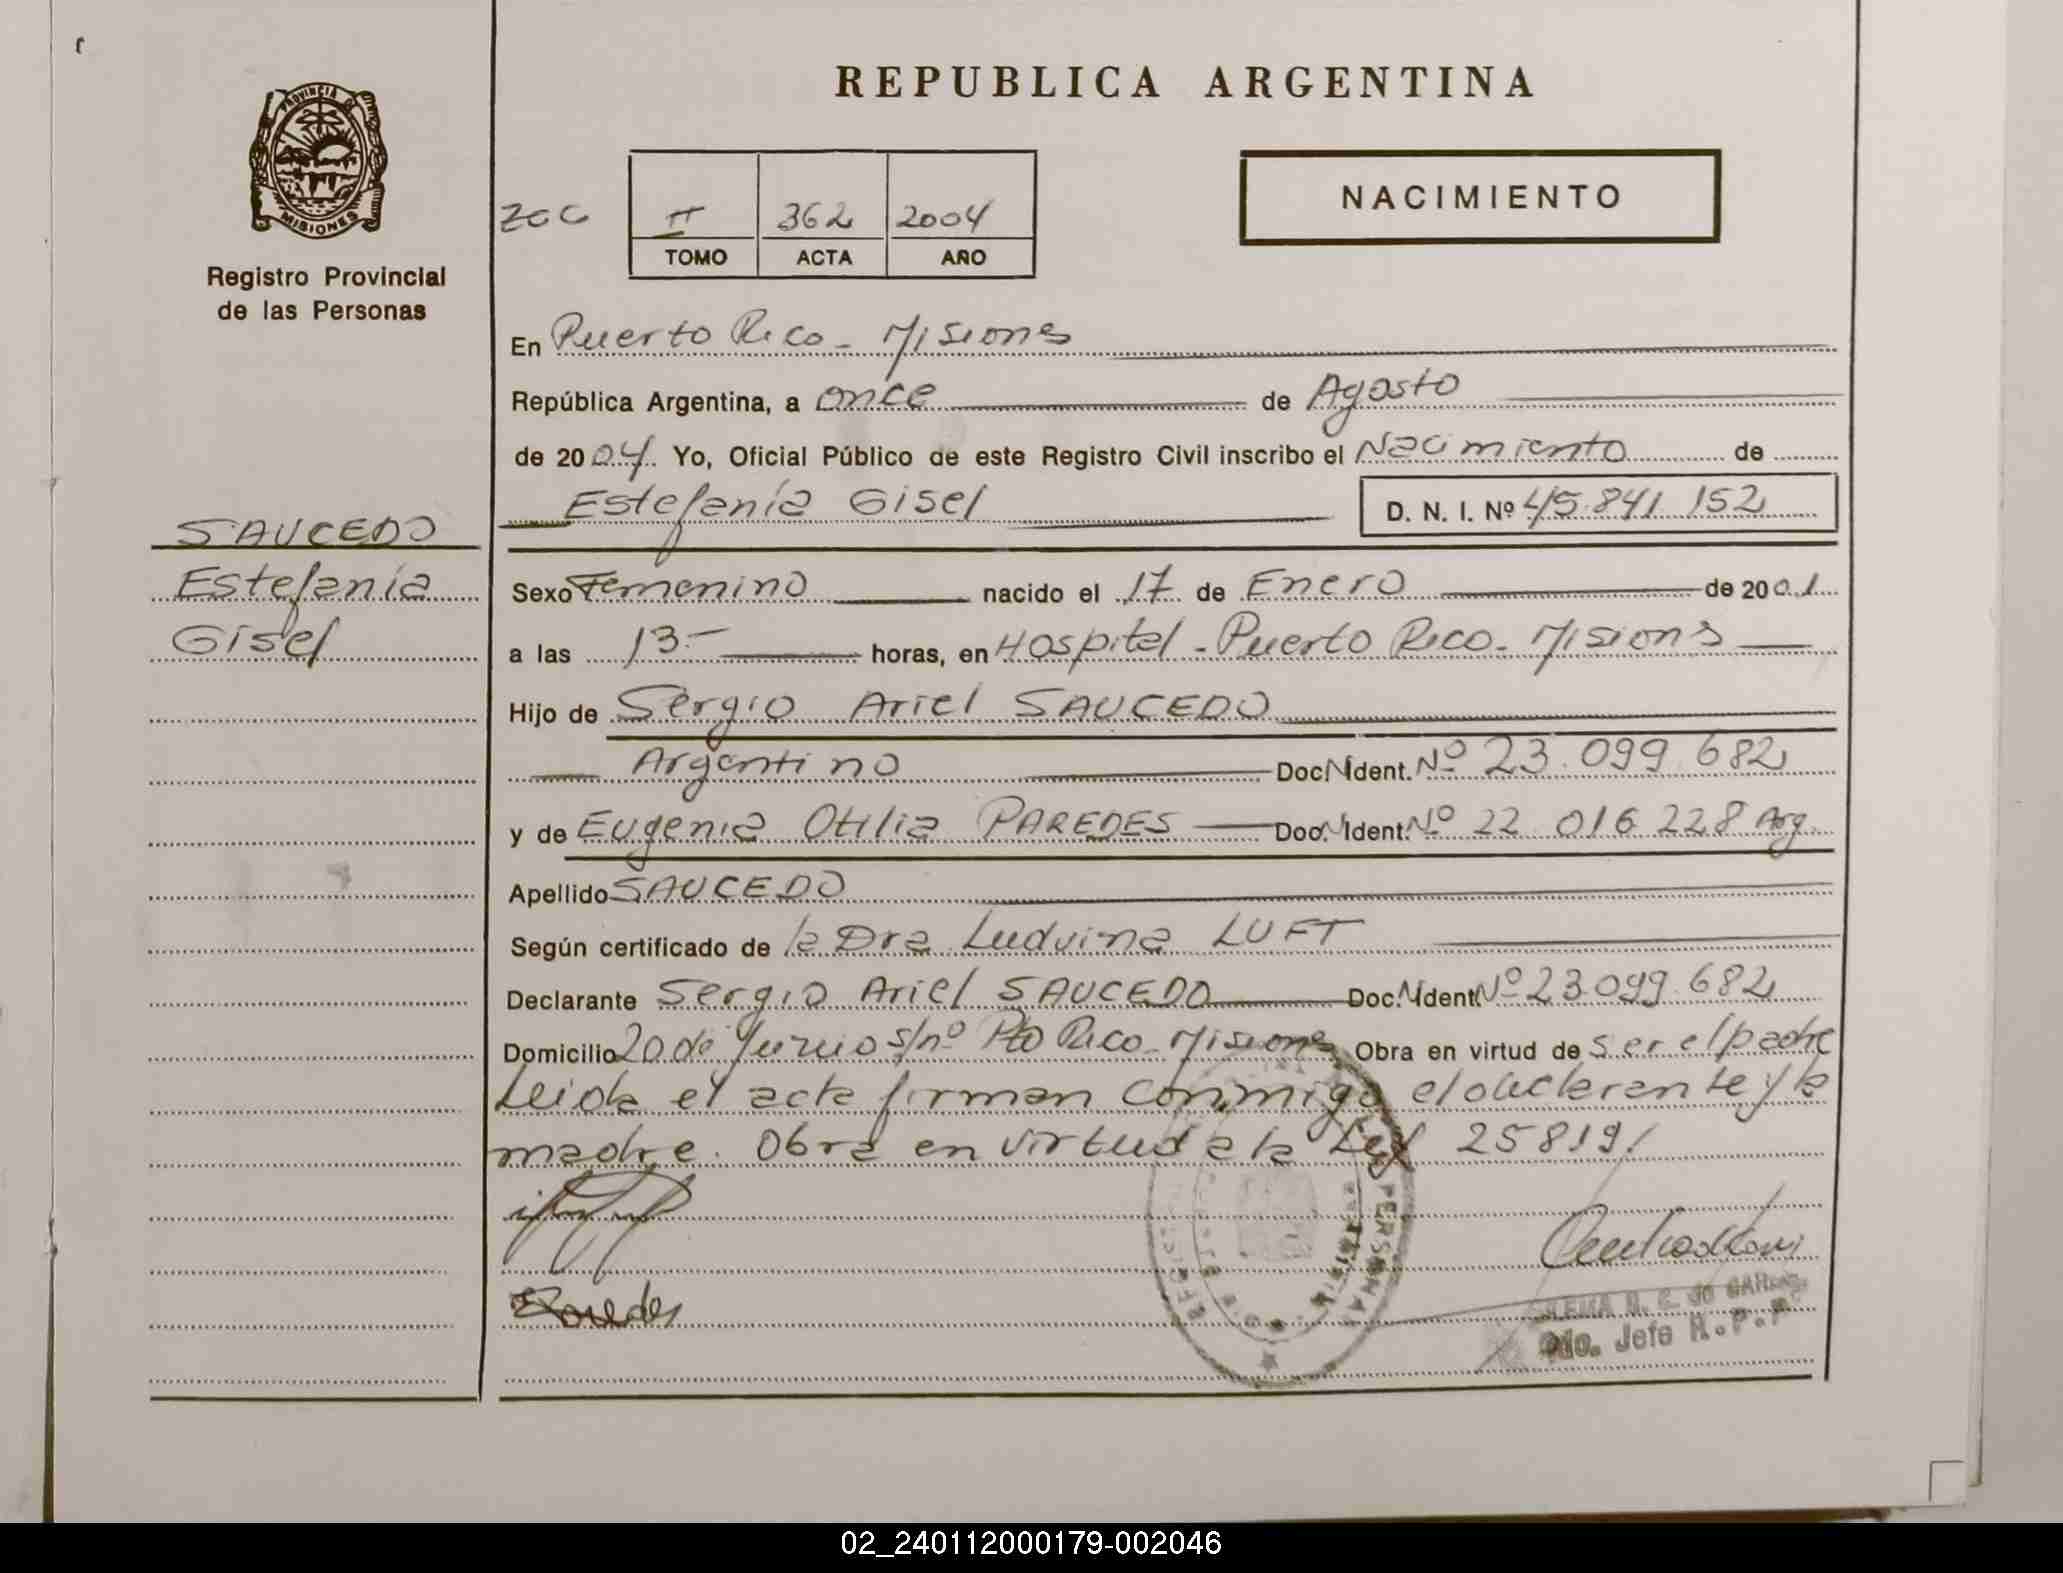 REPUBLICA ARGENTINA
PROVINCIA DE
MISIONES
Registro Provincial
de las Personas
II 362 2004
TOMO ACTA AÑO
NACIMIENTO
En Puerto Rico - Misiones
República Argentina, a once de Agosto
de 2004. Yo, Oficial Público de este Registro Civil inscribo el Nacimiento de
Estefanía Gisel D. N. I. Nº 45.841.152
SAUCEDO
Estefanía
Gisel
Sexo Femenino nacido el 17 de Enero de 2001
a las 13- horas, en Hospital - Puerto Rico - Misions
Hijo de Sergio Ariel SAUCEDO
Argentino Doc. Ident. Nº 23.099.682
y de Eugenia Otilia PAREDES Doc. Ident. Nº 22.016.228 Arg.
Apellido SAUCEDO
Según certificado de la Dra Ludvina LUFT
Declarante Sergio Ariel SAUCEDO Doc. Ident. Nº 23.099.682
Domicilio 20 de Junio s/nº Pto Rico - Misiones Obra en virtud de ser el padre
Leida el acta firman conmigo el declarante y la
madre. Obra en virtud a la Ley 25819/
Paredes
PERSONAS
Jefe R.P.P.
02_240112000179-002046